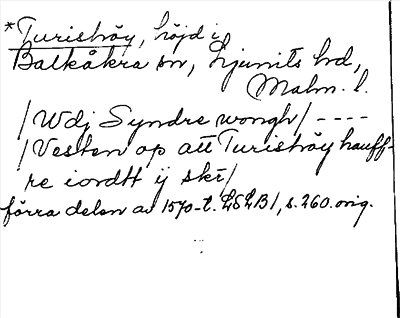 *Turishöy, höjd i
Balkåkra sn, Ljunits hd,
Malm. l.
/Wdj Syndre wongh/ ----
/Vesten op att Turishöy hauff-
re iordtt ij skt/
förra delen av 1570-t. LSLB1, s. 260. orig.